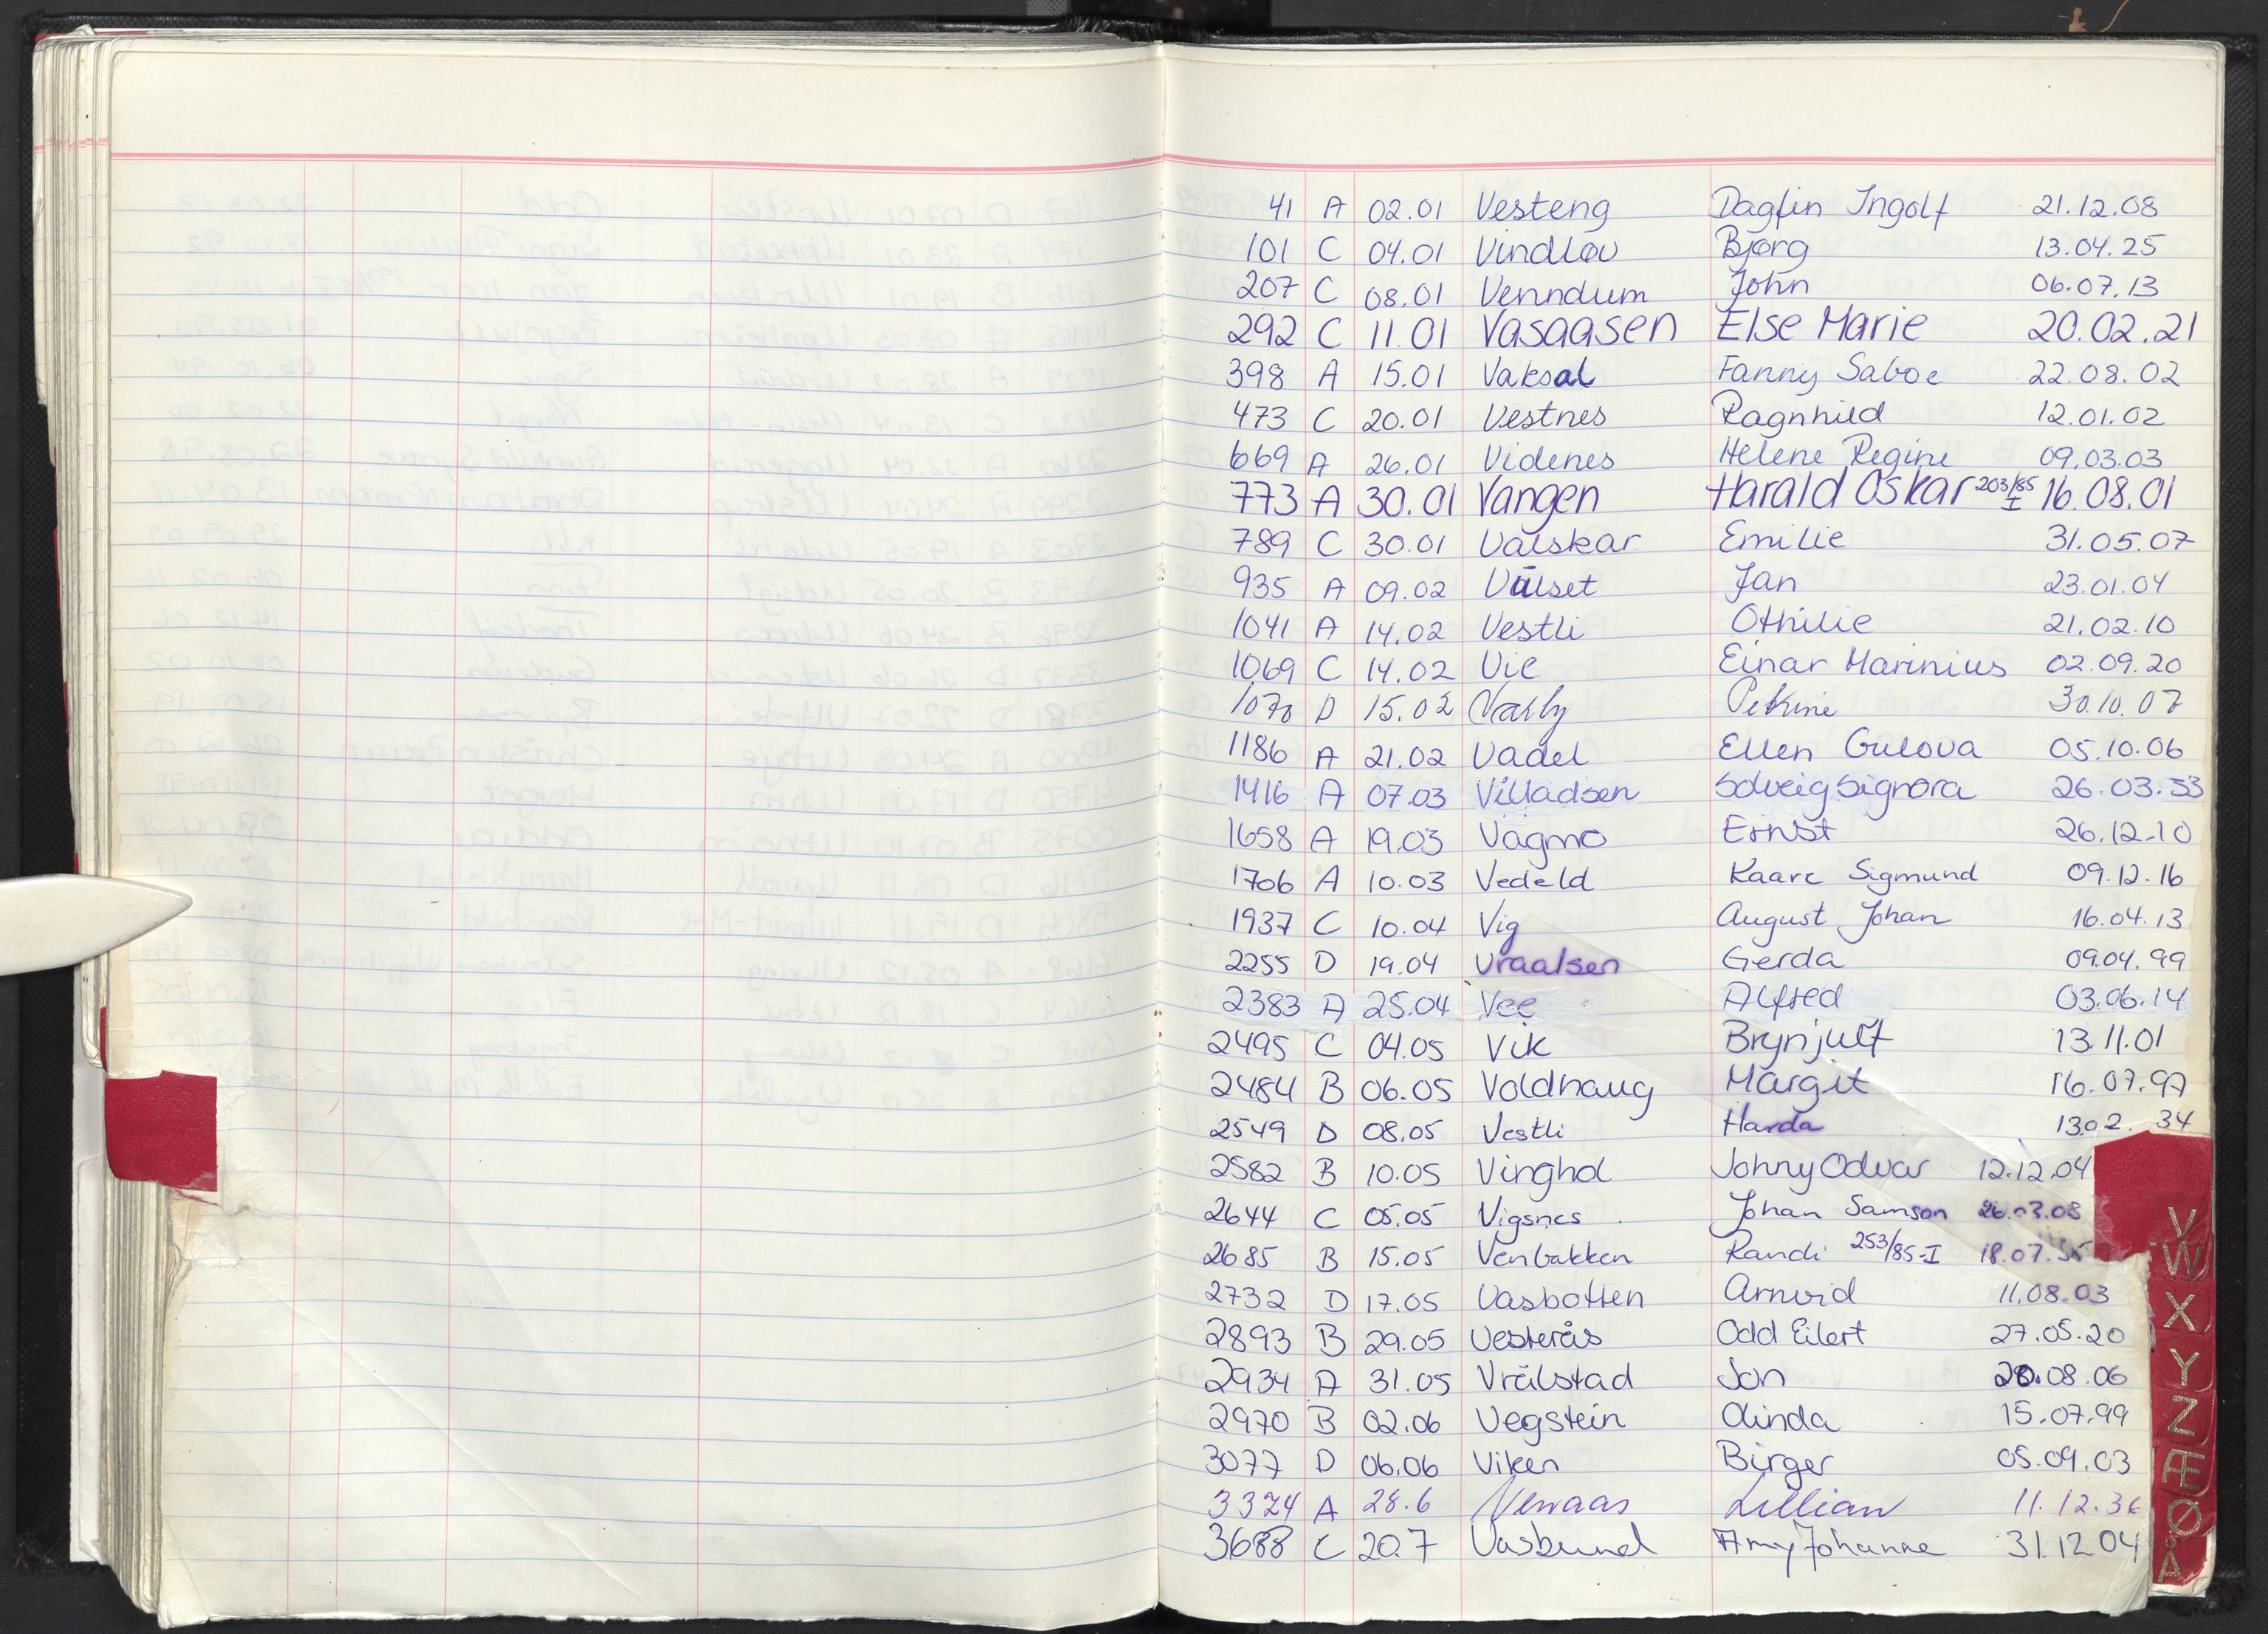 41 A 02.01 Vesteng Dagfin Ingolf 21.12.08
101 C 04.01 Vindløv Bjørg 13.04.25
207 C 08.01 Venndum John 06.07.13
292 C 11.01 Vasaasen Else Marie 20.02.21
398 A 15.01 Vaksal Fanny Saboe 22.08.02
473 C 20.01 Vestnes Ragnhild 12.01.02
669 A 26.01 Videnes Helene Regine 09.03.03
773 A 30.01 Vangen Harald Oskar 203/85 I 16.08.01
789 C 30.01 Valskar Emilie 31.05.07
935 A 09.02 Vålset Jan 23.01.04
1041 A 14.02 Vestli Othilie 21.02.10
1069 C 14.02 Vie Einar Marinius 02.09.20
1070 D 15.02 Petrine 30.10.07
1186 A 21.02 Vadel Ellen Gulova 05.10.06
1416 A 07.03 Villadsen Solveig Signora 26.03.33
1658 A 19.03 Vagmo Ernst 26.12.10
1706 A 10.03 Vedeld Kaare Sigmund 09.12.16
1937 C 10.04 Vig August Johan 16.04.13
2255 D 19.04 Vraalsen Gerda 09.04.99
2383 A 25.04 Vee Alfred 03.06.14
2495 C 04.05 Vik Brynjulf 13.11.01
2484 B 06.05 Voldhaug Margit 16.07.97
2549 D 08.05 Vestli Harda 13.02.34
2582 B 10.05 Vinghol Johny Odvar 12.12.04
2644 C 05.05 Vigsnes Johan Samson 26.03.08
2685 B 15.05 Venbakken Randi 253/85-I 18.07.
2732 D 17.05 Vasbotten Arnvid 11.08.03
2893 B 29.05 Vesterås Odd Eilert 27.05.20
2934 A 31.05 Vrålstad Jon 20.08.06
2970 B 02.06 Vegstein Olinda 15.07.99
3077 D 06.06 Viken Birger 05.09.03
3324 A 28.6 Venaas Lillian 11.12.36
3688 C 20.7 Vasbund Amy Johanne 31.12.04
V
W
X
Y
Z
Æ
Ø
Å